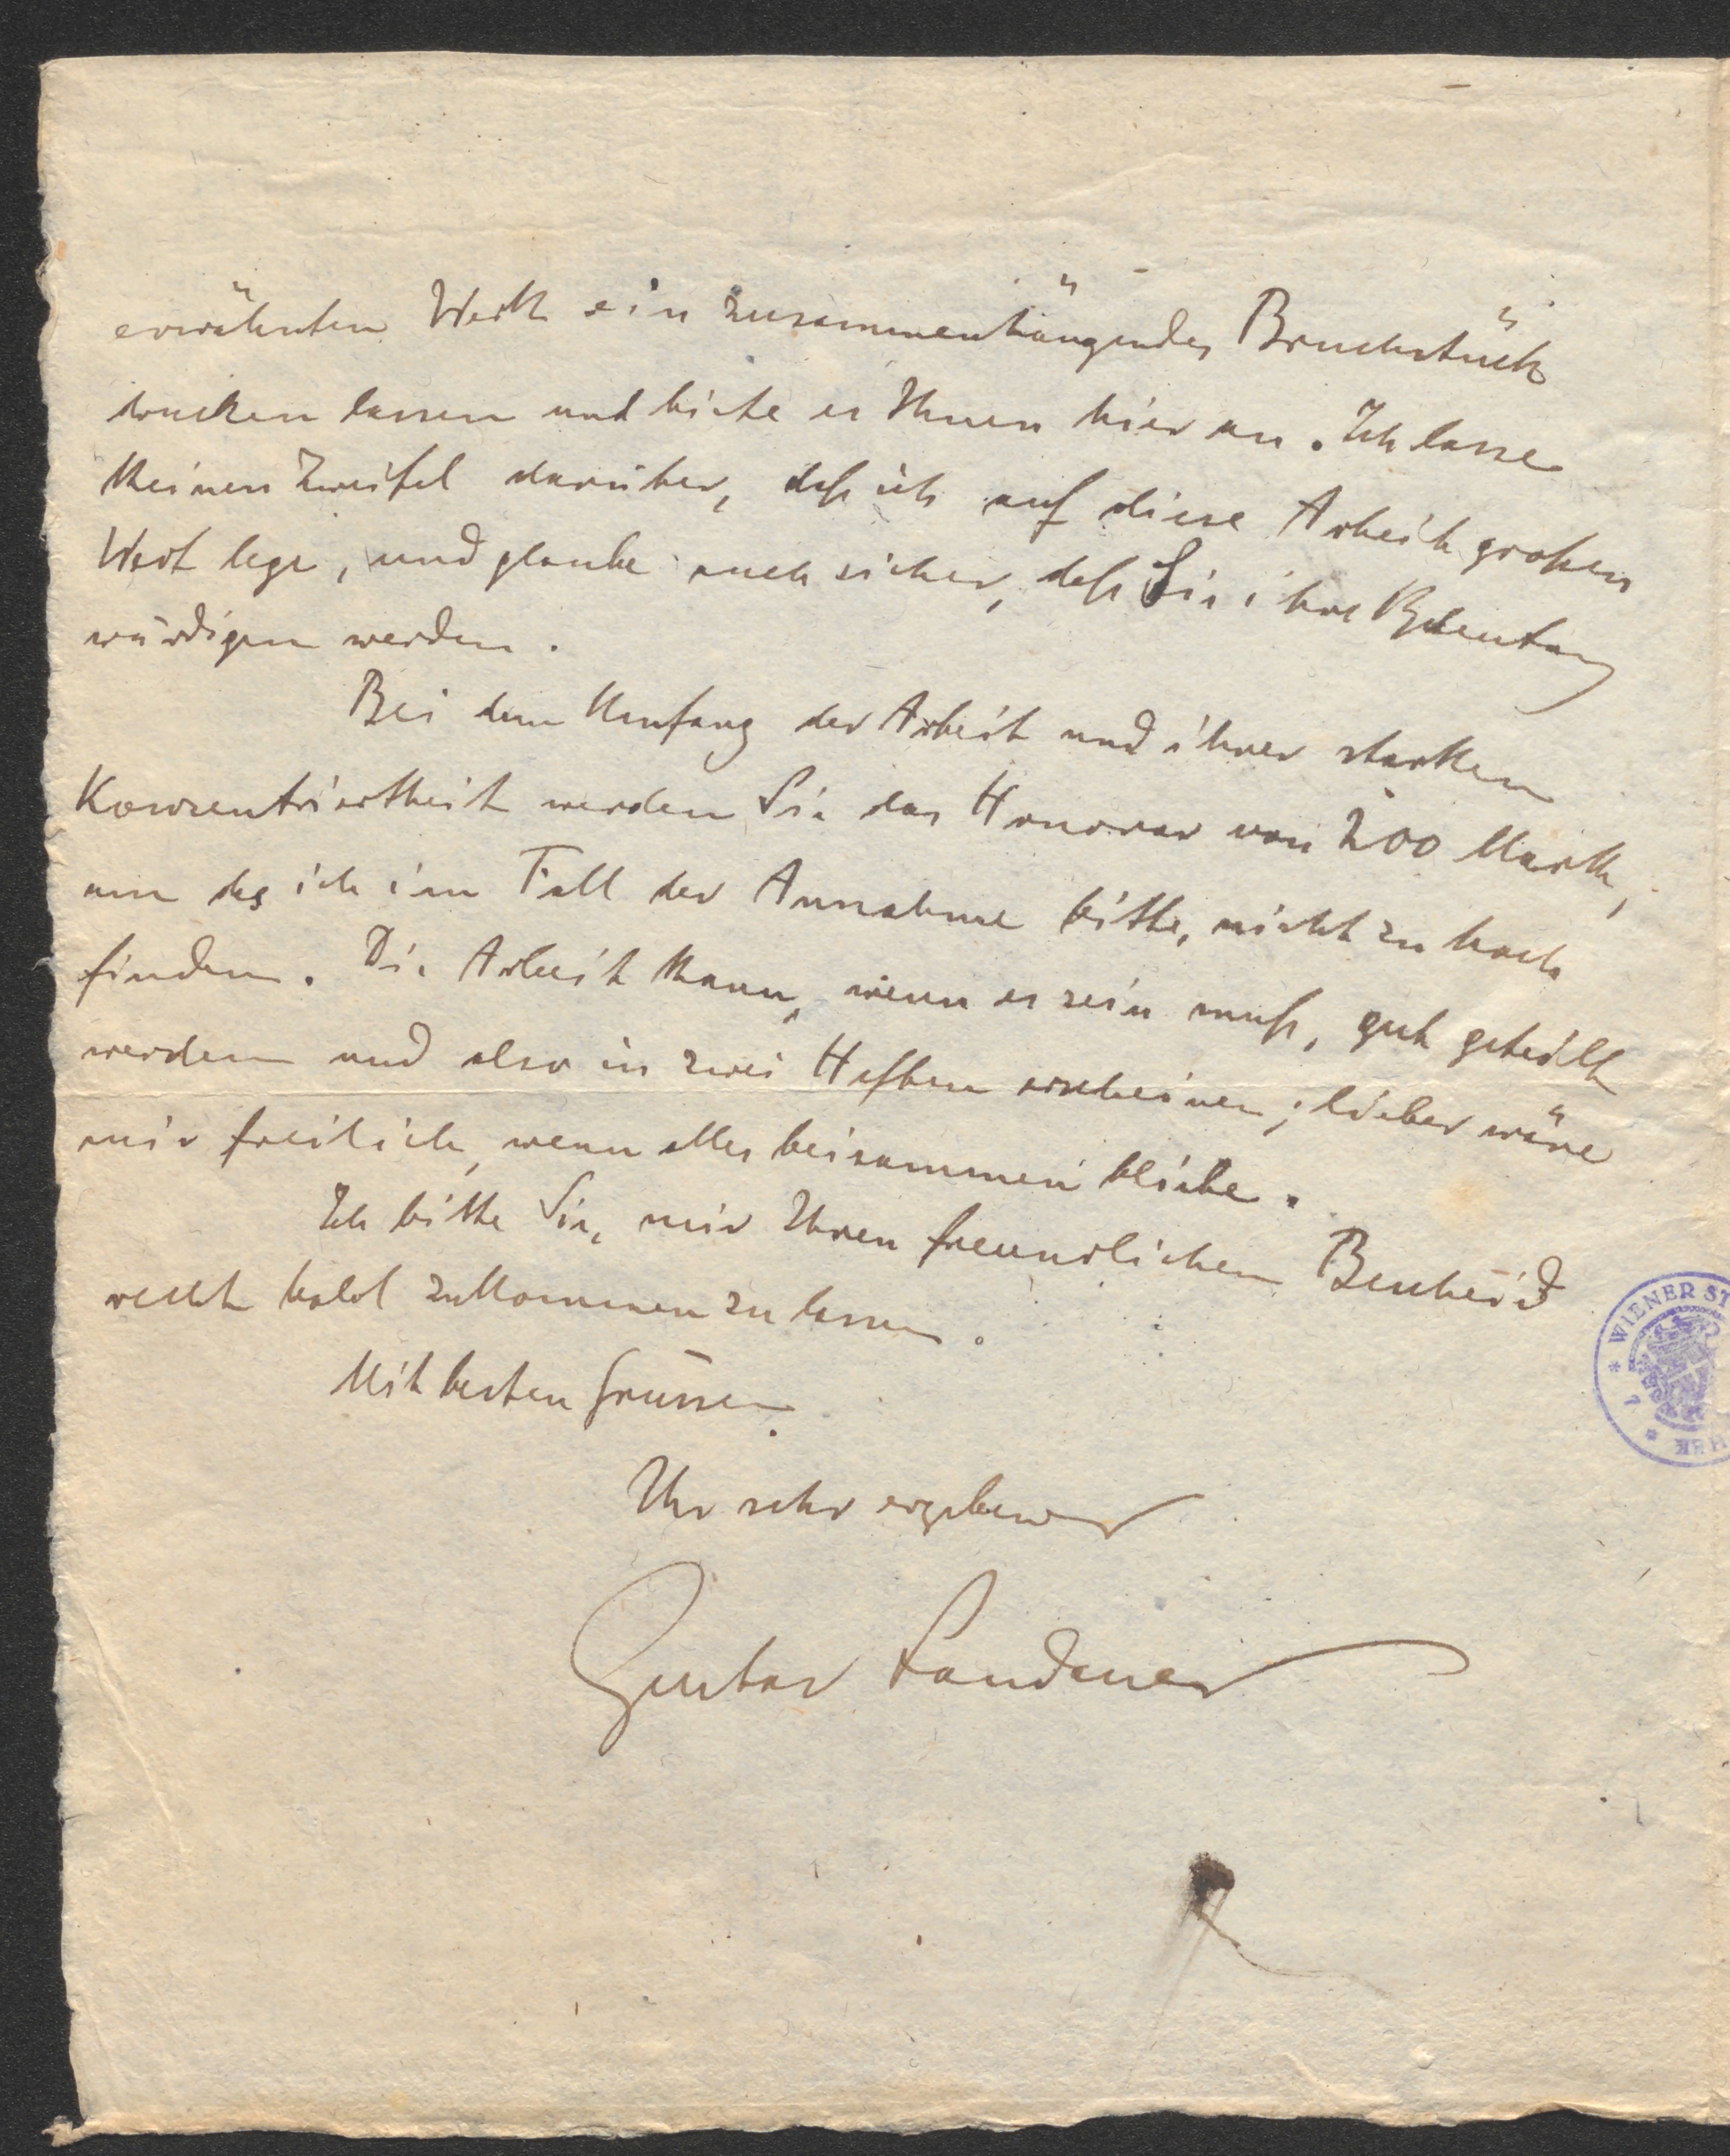 erwähnten Werk ein zusammenhängendes Bruchstück
drucken lassen und biete es Ihnen hier an. Ich lasse
keinen Zweifel darüber, daß ich auf diese Arbeit großen
Wert lege, und glaube auch sicher, daß Sie ihre Bedeutung
würdigen werden.
Bei dem Umfang der Arbeit und ihrer starken
Konzentriertheit werden Sie das Honorar von 200 Mark,
um das ich im Fall der Annahme bitte, nicht zu hoch
finden. Die Arbeit kann, wenn es sein muß, gut geteilt
werden und also in zwei Heften erscheinen; lieber wäre
mir freilich, wenn alles beisammen bliebe.
Ich bitte Sie, mir Ihren freundlichen Bescheid
recht bald zukommen zu lassen.
Mit besten Grüssen
Ihr sehr ergebener
Gustav Landauer
WIENER ST